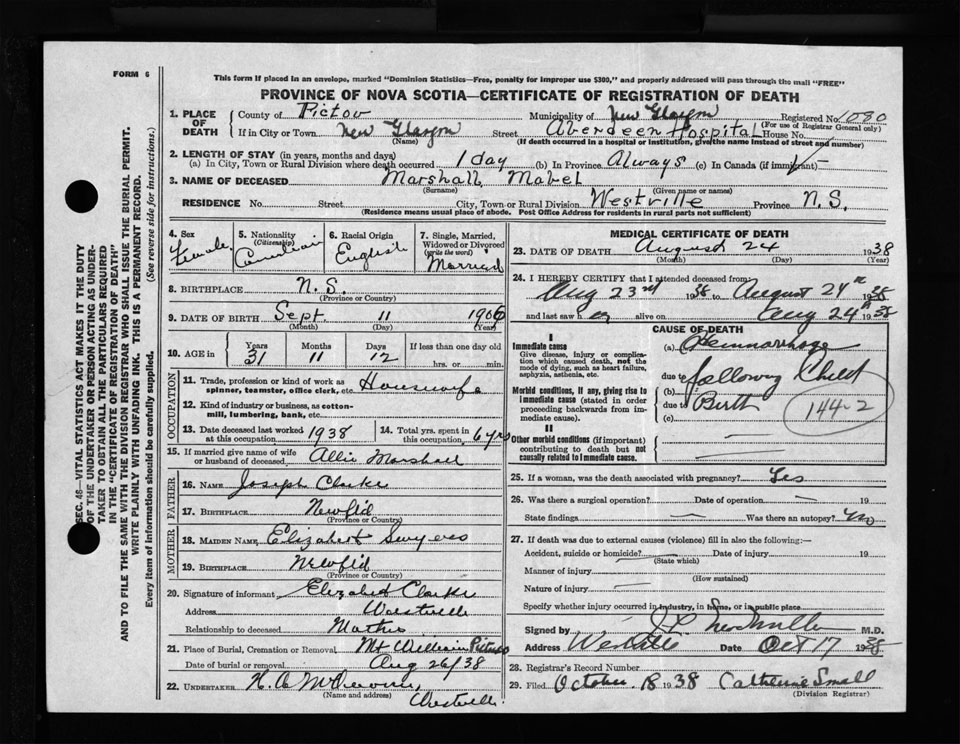 FORM 6
This form if placed in an envelope, marked "Dominion Statistics—Free, penalty for improper use $300," and properly addressed will pass through the mail "FREE"
PROVINCE OF NOVA SCOTIA—CERTIFICATE OF REGISTRATION OF DEATH
1. PLACE OF DEATH County of Pictou Municipality of New Glasgow Registered No. 1080
(For use of Registrar General only)
If in City or Town New Glasgow Street Aberdeen Hospital House No.
(Name) (If death occurred in a hospital or institution, give the name instead of street and number)
2. LENGTH OF STAY (in years, months and days)
(a) In City, Town or Rural Division where death occurred 1 day (b) In Province Always (c) In Canada (if immigrant)
3. NAME OF DECEASED Marshall Mabel
(Surname) (Given name or names)
RESIDENCE No. Street City, Town or Rural Division Westville Province N.S.
(Residence means usual place of abode. Post Office Address for residents in rural parts not sufficient)
4. Sex Female
5. Nationality (Citizenship) Canadian
6. Racial Origin English
7. Single, Married, Widowed or Divorced (write the word) Married
8. BIRTHPLACE N.S.
(Province or Country)
9. DATE OF BIRTH Sept 11 1906
(Month) (Day) (Year)
10. AGE in Years 31 Months 11 Days 12 If less than one day old hrs. or min.
OCCUPATION
11. Trade, profession or kind of work as spinner, teamster, office clerk, etc. Housewife
12. Kind of industry or business, as cotton-mill, lumbering, bank, etc.
13. Date deceased last worked at this occupation 1938
14. Total yrs. spent in this occupation 6 yrs
15. If married give name of wife or husband of deceased Allie Marshall
FATHER
16. NAME Joseph Clarke
17. BIRTHPLACE Newfld
(Province or Country)
MOTHER
18. MAIDEN NAME Elizabeth
19. BIRTHPLACE Newfld
(Province or Country)
20. Signature of informant Elizabeth Clarke
Address Westville
Relationship to deceased Mother
21. Place of Burial, Cremation or Removal Mt William Pictou
Date of burial or removal Aug 26/38
22. UNDERTAKER H. A.
(Name and address) Westville
MEDICAL CERTIFICATE OF DEATH
23. DATE OF DEATH August 24 1938
(Month) (Day) (Year)
24. I HEREBY CERTIFY that I attended deceased from:
Aug 23rd 1938 to August 24th 1938
and last saw her alive on Aug 24th 1938
CAUSE OF DEATH
I
Immediate cause
Give disease, injury or complication which caused death, not the mode of dying, such as heart failure, asphyxia, asthenia, etc.
(a) Hemmorrhage
due to following Child
Morbid conditions, if any, giving rise to immediate cause (stated in order proceeding backwards from immediate cause).
(b)
due to Birth
(c)
144-2
II
Other morbid conditions (if important) contributing to death but not causally related to immediate cause.
25. If a woman, was the death associated with pregnancy? Yes
26. Was there a surgical operation? — Date of operation — 19
State findings — Was there an autopsy? No
27. If death was due to external causes (violence) fill in also the following:—
Accident, suicide or homicide? Date of injury 19
(State which)
Manner of injury
(How sustained)
Nature of injury
Specify whether injury occurred in industry, in home, or in public place
Signed by M.D.
Address Westville Date Oct 17 1938
28. Registrar's Record Number
29. Filed October 18 1938 Catherine Small
(Division Registrar)
SEC. 46—VITAL STATISTICS ACT MAKES IT THE DUTY
OF THE UNDERTAKER OR PERSON ACTING AS UNDER-
TAKER TO OBTAIN ALL THE PARTICULARS REQUIRED
IN THE "CERTIFICATE OF REGISTRATION OF DEATH"
AND TO FILE THE SAME WITH THE DIVISION REGISTRAR WHO SHALL ISSUE THE BURIAL PERMIT.
WRITE PLAINLY WITH UNFADING INK. THIS IS A PERMANENT RECORD.
Every item of information should be carefully supplied. (See reverse side for instructions.)